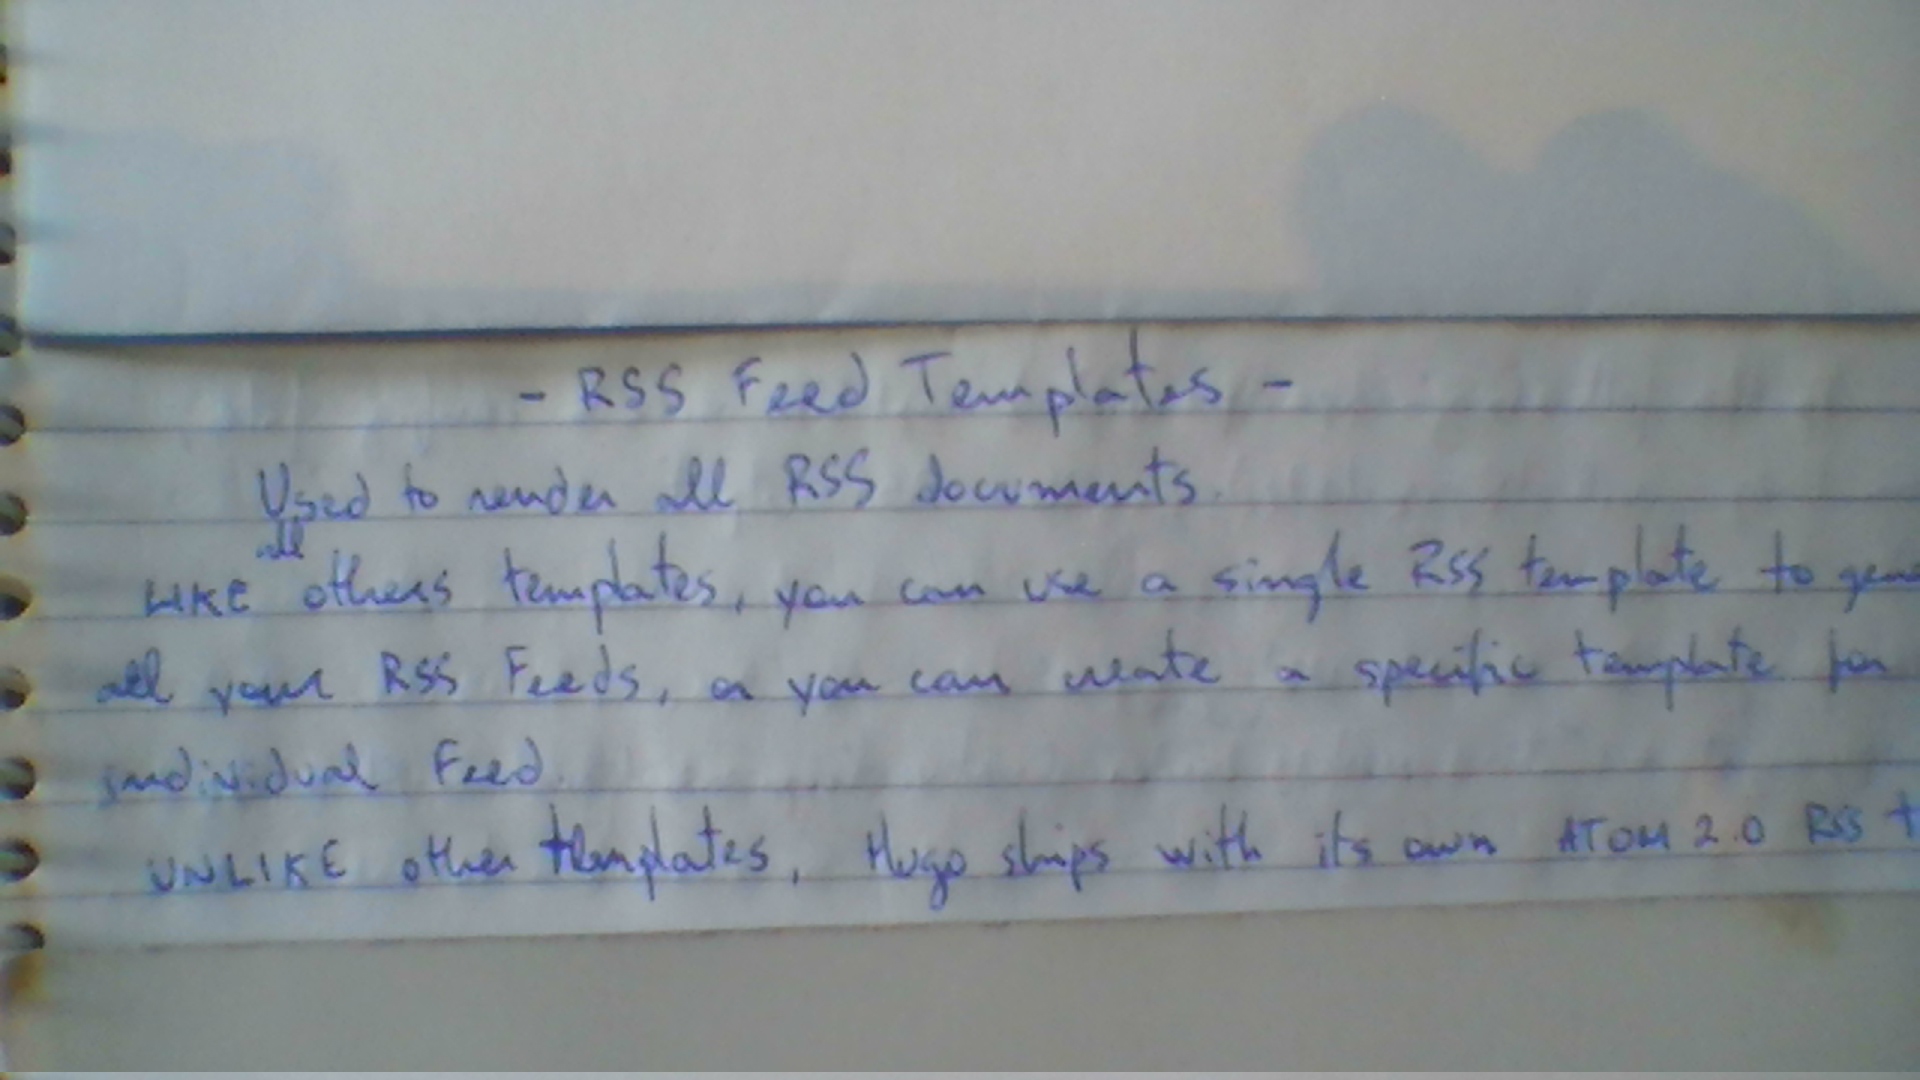 - RSS Feed Templates -
Used to render all RSS documents.
LIKE all others templates, you can use a single RSS template to gene
all your RSS Feeds, or you can create a specific template for
individual Feed.
UNLIKE other templates, Hugo ships with its own ATOM 2.0 RSS t